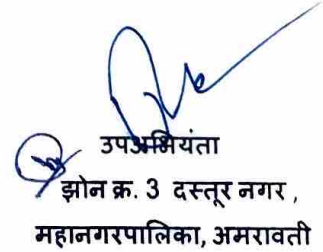 उपअभियंता
झोन क्र. 3 दस्तूर नगर ,
महानगरपालिका, अमरावती